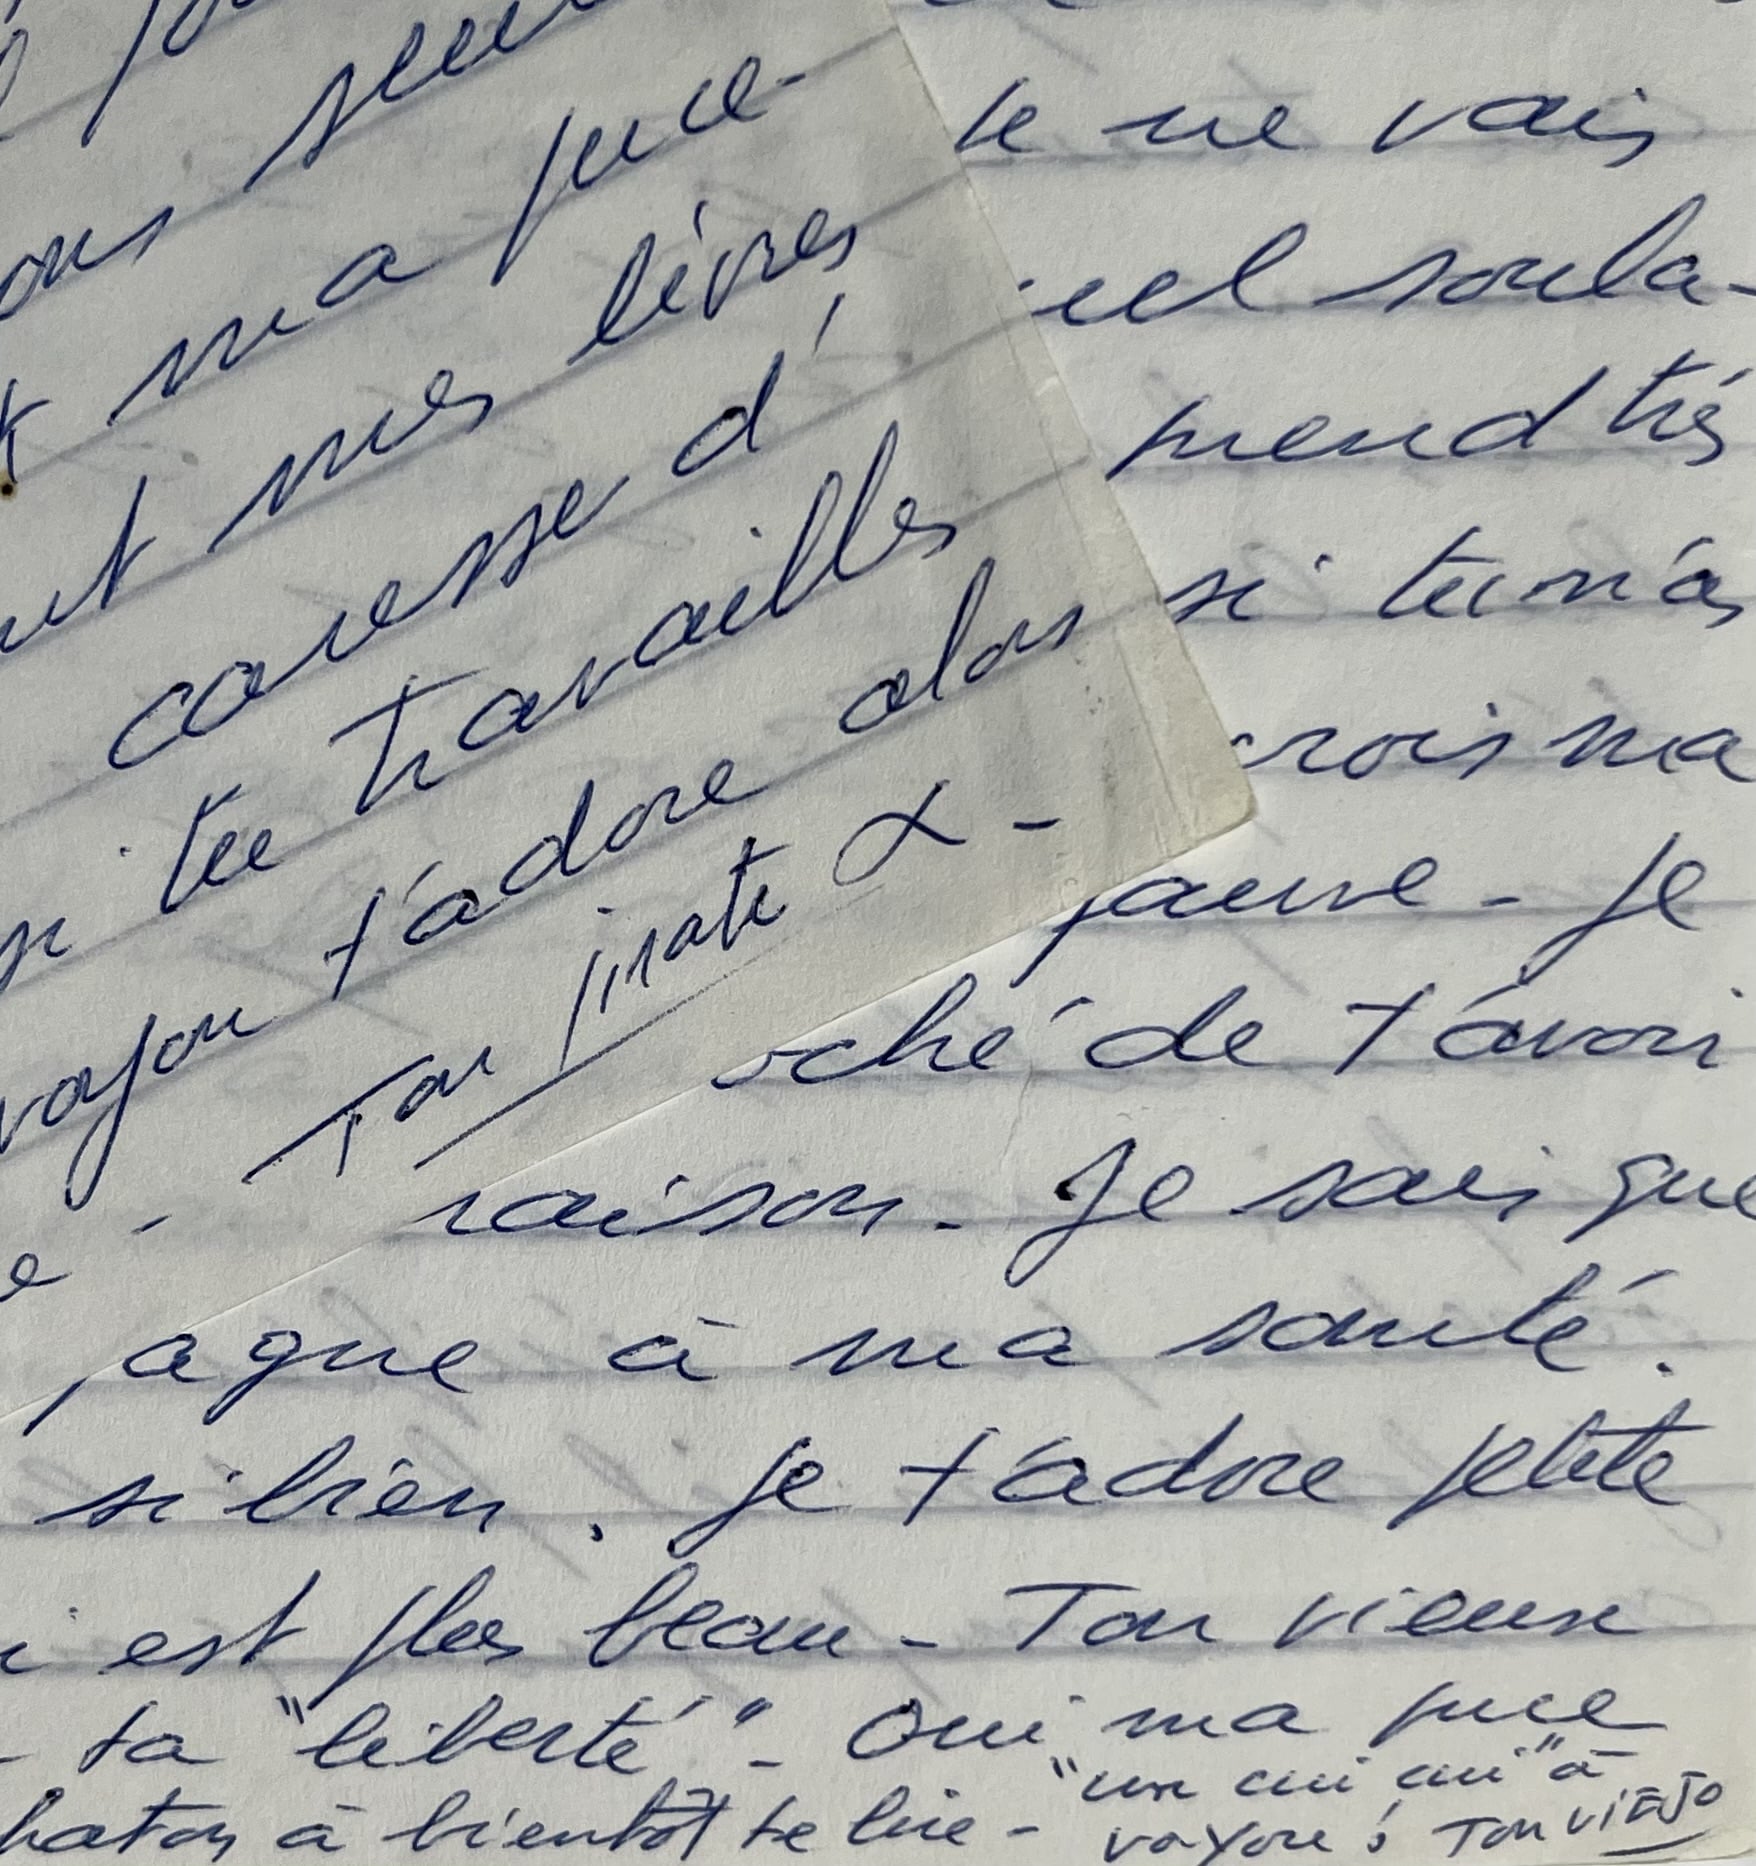 ous seul
ma puce-
ut mes lèvres
caresse d'
si tu travailles
voyou t'adore alors
α -
Ton pirate
e -
te ne vais
uel soula-
prend très
si tu m'as
crois ma
jaune - je
oché de t'avoir
raison - Je sais que
pague à ma santé.
si bien. je t'adore petite
i est plus beau - Ton vieux
- ta "liberté" - Oui ma puce
"un cui cui" à
haton à bientôt te lire -
voyou! Ton viejo